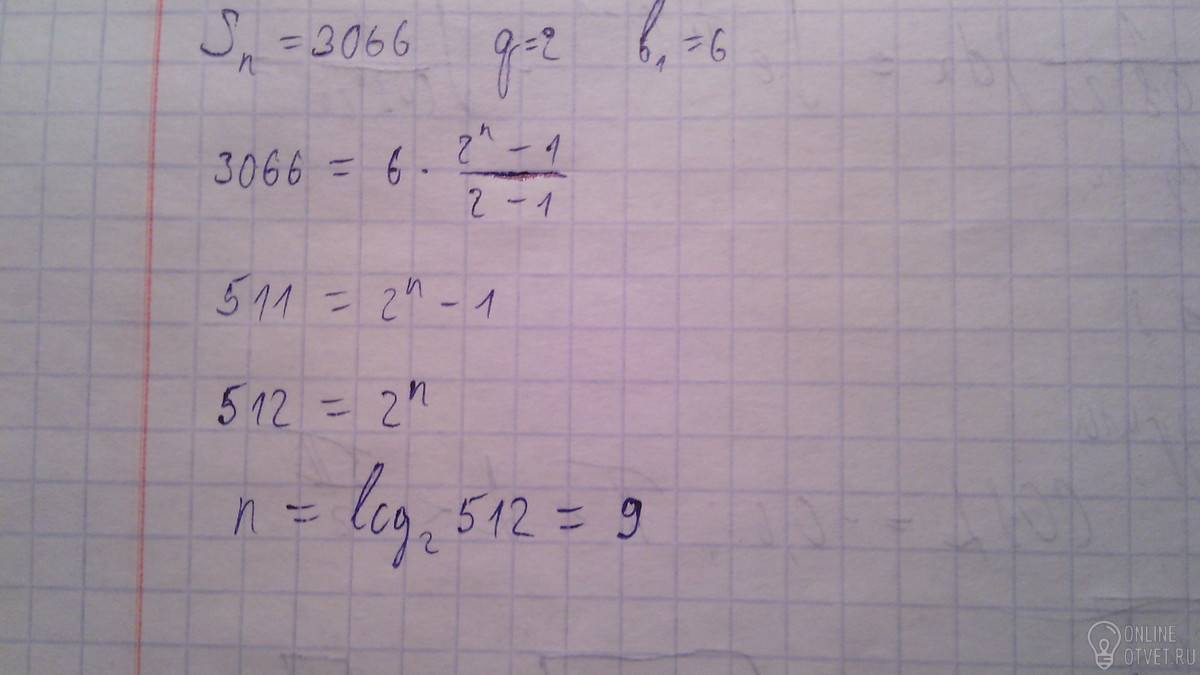 Sₙ = 3066   q=2   b₁ = 6
3066 = 6 · (2ⁿ − 1)/(2 − 1)
511 = 2ⁿ − 1
512 = 2ⁿ
n = log₂ 512 = 9
ONLINE
OTVET.RU